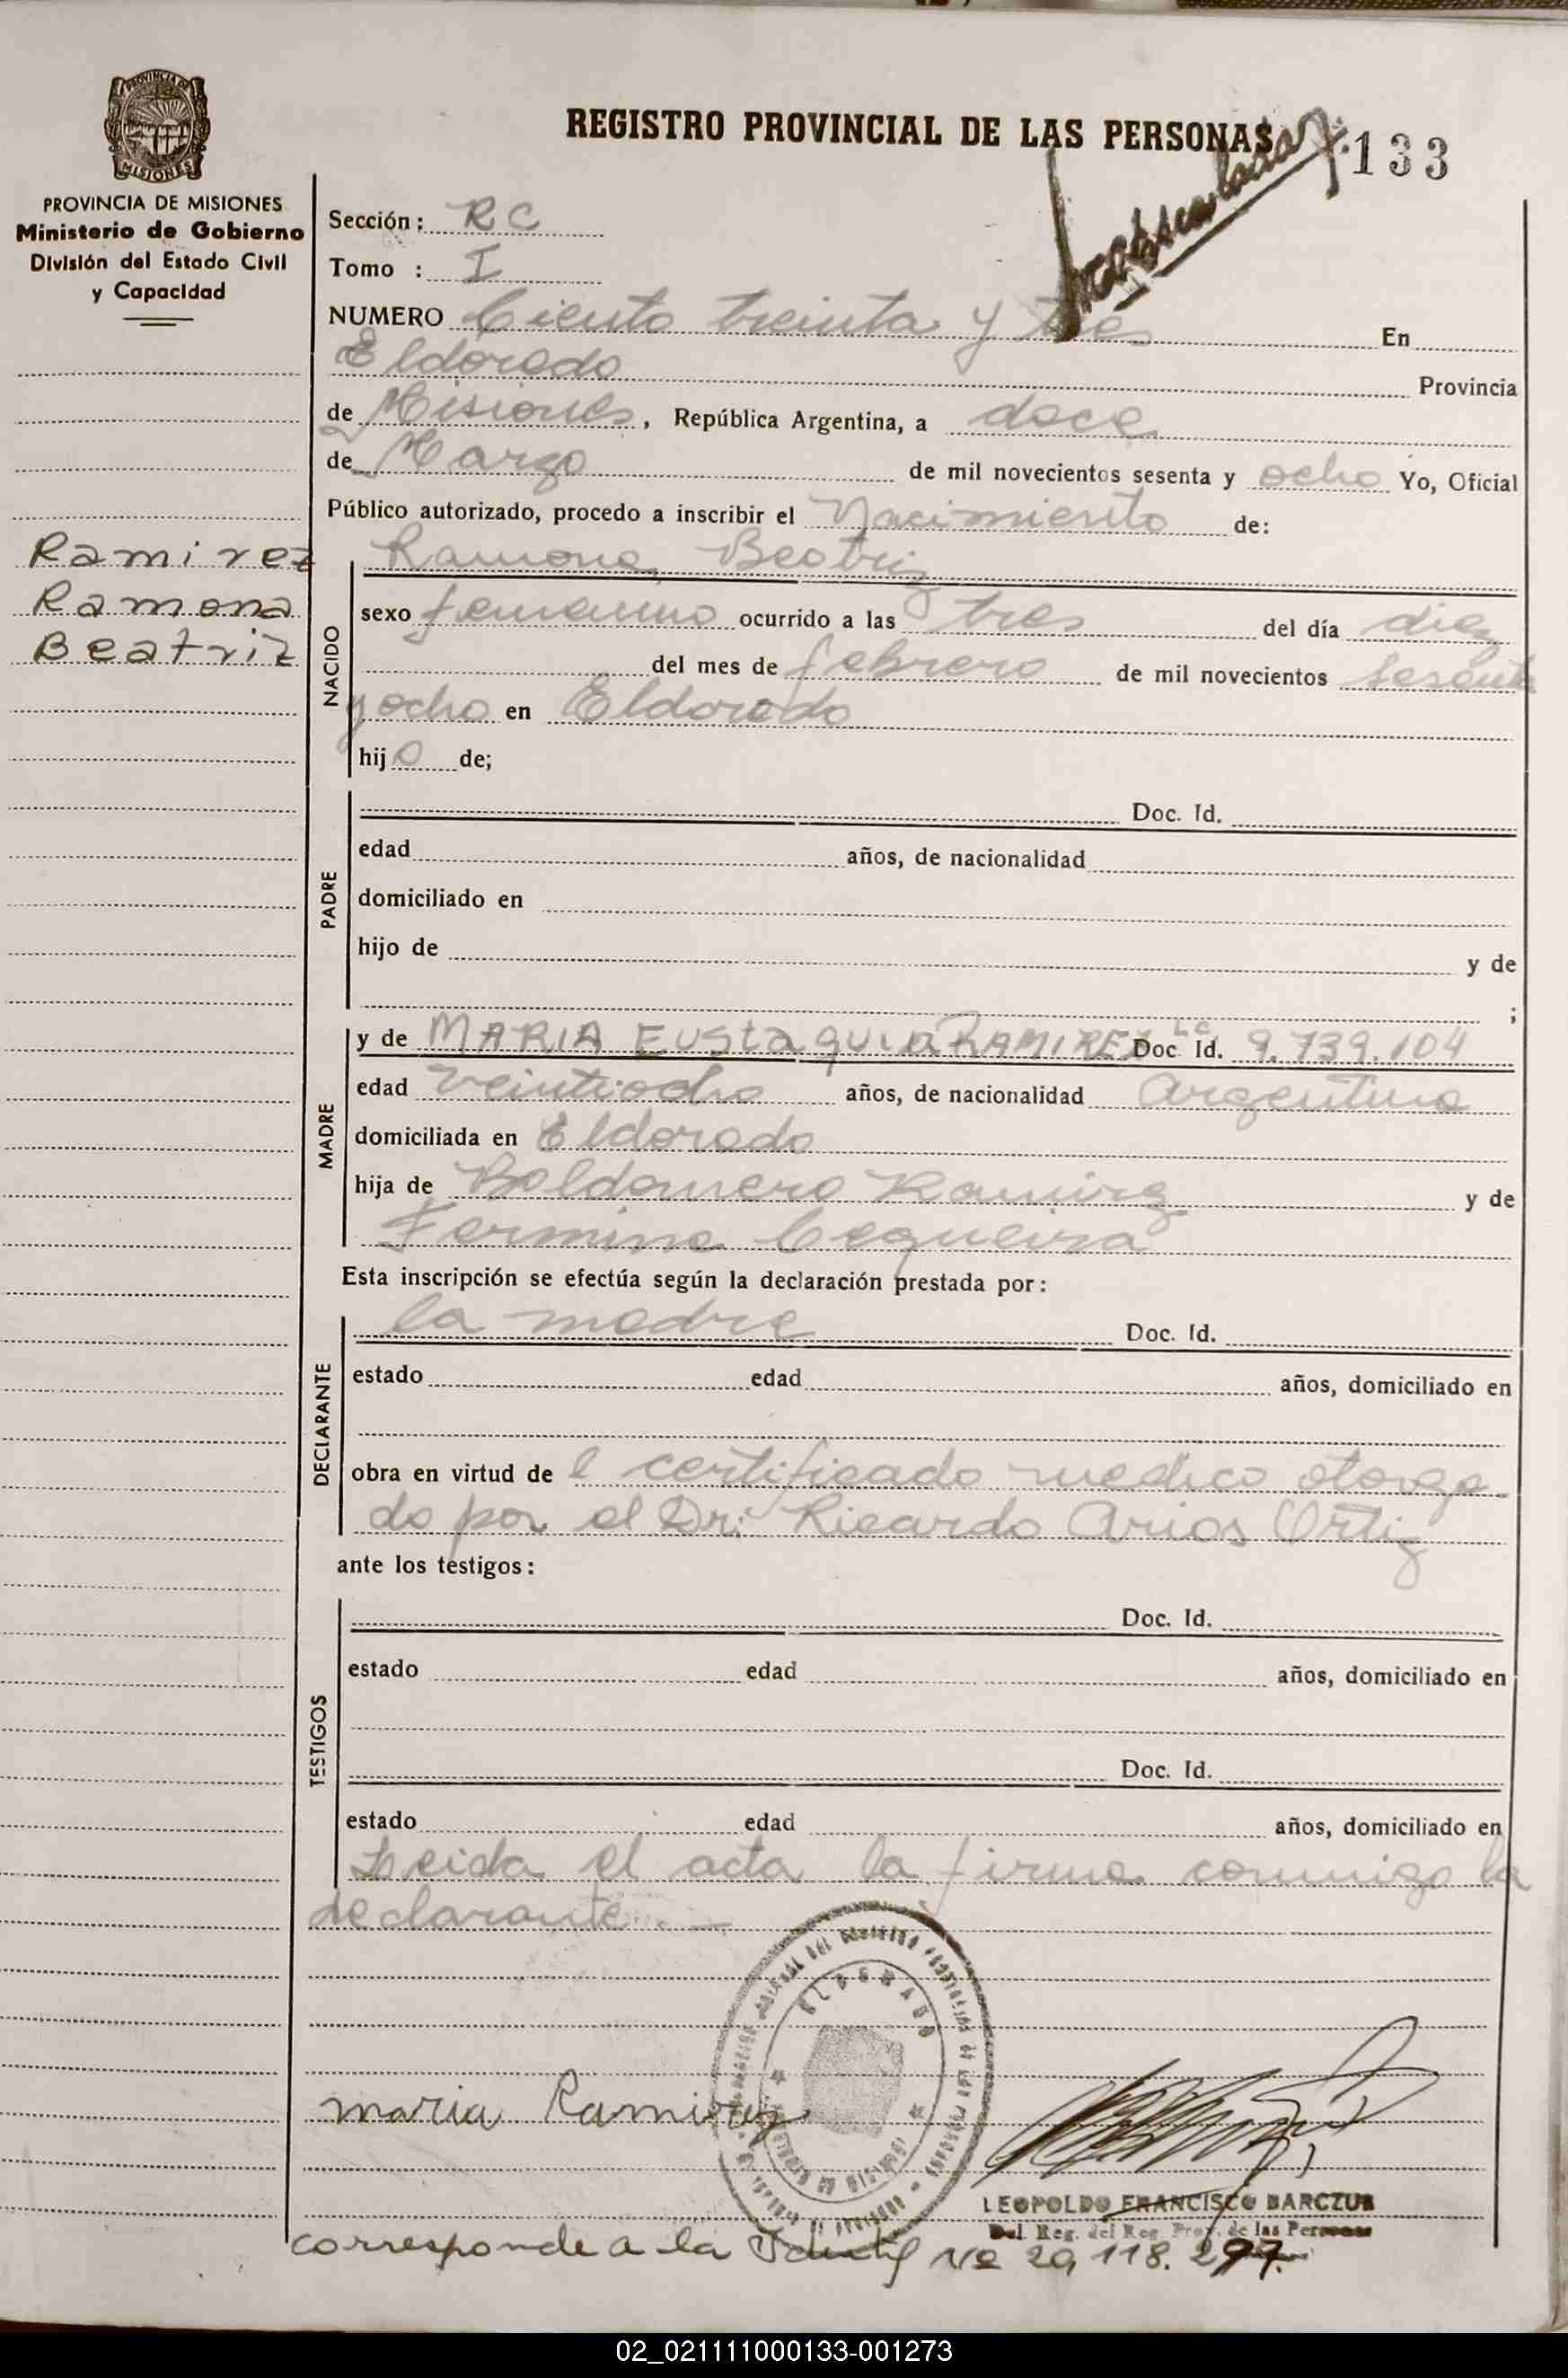 PROVINCIA DE
MISIONES
PROVINCIA DE MISIONES
Ministerio de Gobierno
División del Estado Civil
y Capacidad
Ramirez
Ramona
Beatriz
REGISTRO PROVINCIAL DE LAS PERSONAS
133
Sección: RC
Tomo : I
NUMERO Ciento treinta y tres En
Eldorado Provincia
de Misiones, República Argentina, a doce
de Marzo de mil novecientos sesenta y ocho Yo, Oficial
Público autorizado, procedo a inscribir el Nacimiento de:
NACIDO
Ramona Beatriz
sexo femenino ocurrido a las tres del día diez
del mes de febrero de mil novecientos sesenta
y ocho en Eldorado
hijo de;
PADRE
Doc. Id.
edad años, de nacionalidad
domiciliado en
hijo de y de
;
MADRE
y de MARIA EUSTAQUIA RAMIREZ Doc. Id. L.C. 9.739.104
edad veintiocho años, de nacionalidad Argentina
domiciliada en Eldorado
hija de Baldomero Ramirez y de
Fermina Cequeira
Esta inscripción se efectúa según la declaración prestada por:
DECLARANTE
la madre Doc. Id.
estado edad años, domiciliado en
obra en virtud de l certificado medico otorga
do por el Dr: Ricardo Arios Ortiz
ante los testigos:
TESTIGOS
Doc. Id.
estado edad años, domiciliado en
Doc. Id.
estado edad años, domiciliado en
Leida el acta la firma conmigo la
declarante. —
ELDORADO
maria Ramirez
LEOPOLDO FRANCISCO BARCZUK
Del. Reg. del Reg. Prov. de las Personas
corresponde a la Identif Nº 20.118.297.
02_021111000133-001273